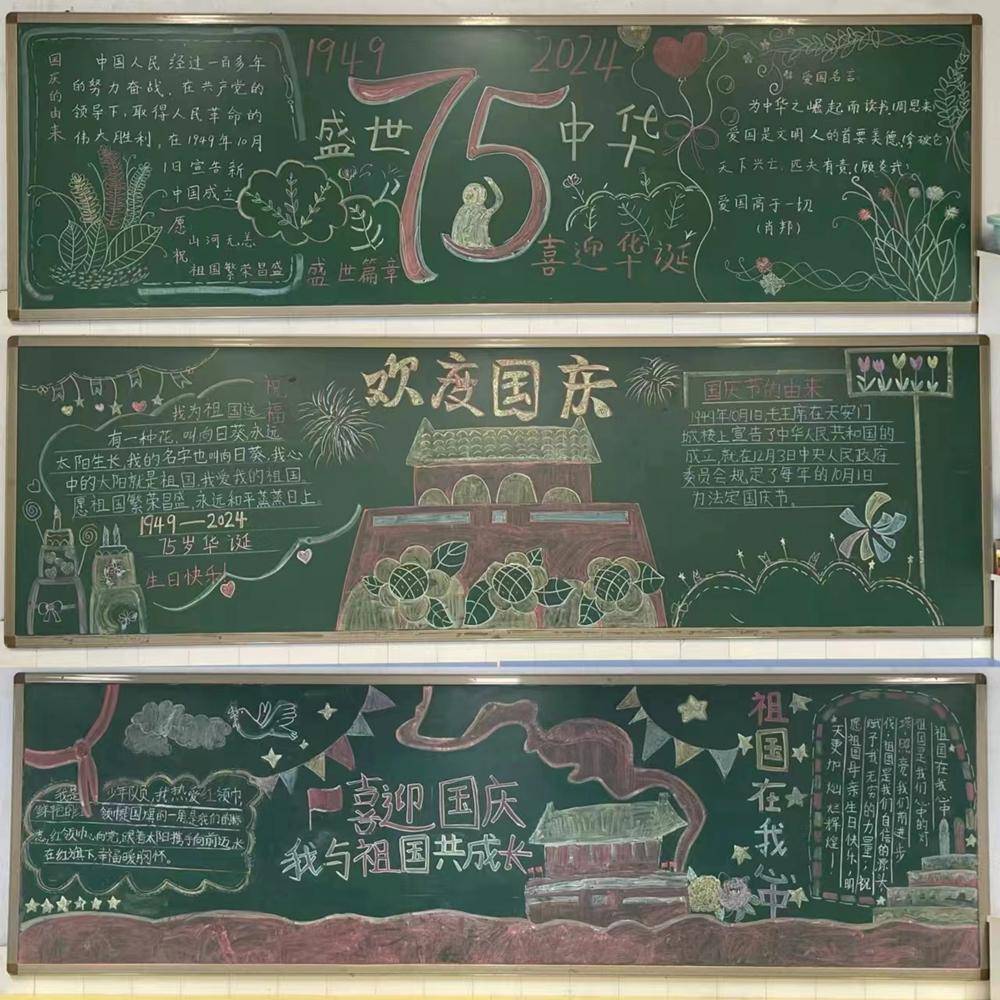 国庆的由来
中国人民经过一百多年
的努力奋战,在共产党的
领导下,取得人民革命的
伟大胜利,在1949年10月
1日宣告新
中国成立
愿
山河无恙
祝
祖国繁荣昌盛
1949
2024
盛世
75
中华
盛世篇章
喜迎华诞
爱国名言
为中华之崛起而读书(周恩来
爱国是文明人的首要美德(拿破仑)
天下兴亡,匹夫有责(顾炎武)
爱国高于一切
(肖邦)
欢度国庆
祝福
我为祖国送
有一种花,叫向日葵,永远
太阳生长,我的名字也叫向日葵,我心
中的太阳就是祖国,我爱我的祖国
愿祖国繁荣昌盛,永远和平蒸蒸日上
1949—2024
75岁华诞
生日快乐!
国庆节的由来
1949年10月1日,毛主席在天安门
城楼上宣告了中华人民共和国的
成立,就在12月3日中央人民政府
委员会规定了每年的10月1日
为法定国庆节。
我是 少年队员,我热爱红领巾
鲜艳的 领巾是国旗的一角是我们的标
志,红领巾心向党,跟着太阳携手向前迈,永
在红旗下幸福暖胸怀。
喜迎国庆
我与祖国共成长
祖国在我心中
祖国在我心中
祖国是我们心中的灯
塔,照亮我们前进步
伐,祖国是我们自信的源头
赋予我无穷的力量,祝
愿祖国母亲生日快乐,明
天更加灿烂辉煌!